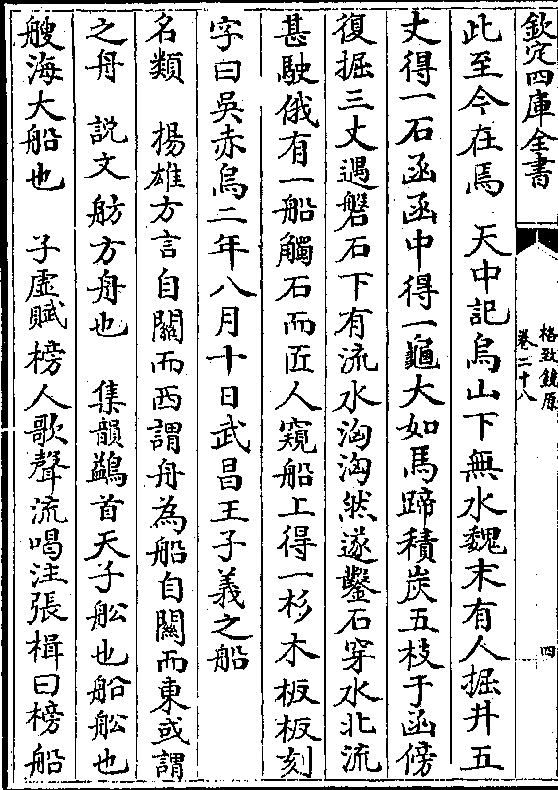 欽定四庫全書
格致鏡原
卷二十八
四
此至今在焉　天中記烏山下無水魏末有人掘井五
丈得一石函函中得一龜大如馬蹄積炭五枝于函傍
復掘三丈遇磐石下有流水洶洶然遂鑿石穿水北流
甚駛俄有一船觸石而匠人窺船上得一杉木板板刻
字曰吳赤烏二年八月十日武昌王子義之船
名類　楊雄方言自關而西謂舟為船自關而東或謂
之舟　説文舫方舟也　集韻鷁首天子舩也船舩也
艘海大船也　子虛賦榜人歌聲流喝注張楫曰榜船